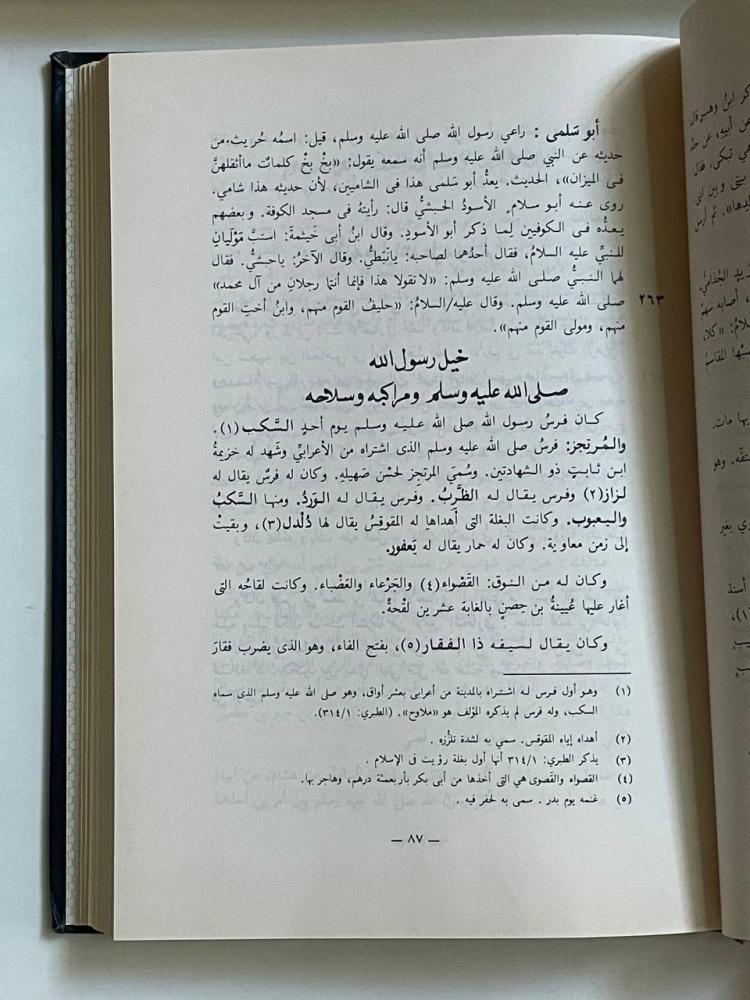 أبو سَلمى : راعي رسول الله صلى الله عليه وسلم، قيل: اسمه حُريث. من
حديثه عن النبي صلى الله عليه وسلم أنه سمعه يقول: «بخٍْ بخْ كلماتٌ ماأثقلهنَّ
فى الميزان»، الحديث. يعدُّ أبو سَلمى هذا فى الشاميين، لأن حديثه هذا شامي.
روى عنه أبو سلام. الأسودُ الحبشيُّ قال: رأيتهُ فى مسجد الكوفة. وبعضهم
يعدُّه فى الكوفيين لِما ذكر أبو الأسودِ. وقال ابنُ أبى خَيثمةَ: استبَّ مَوْلَيانِ
للنبيِّ عليه السلامُ، فقال أحدُهما لصاحبه: يانَبَطيُّ. وقال الآخرُ: ياحبشيُّ. فقال
لهما النبيُّ صلى الله عليه وسلم: «لا تقولا هذا فإنما أنتما رجلان من آل محمد»
صلى الله عليه وسلم. وقال عليه/السلامُ: «حليفُ القوم منهم، وابنُ أختِ القوم
٢٦٣
منهم، ومولى القوم منهم».
خيل رسول الله
صلى الله عليه وسلم ومراكبه وسلاحه
كان فرسُ رسول الله صلى الله عليه وسلم يوم أحدٍ السَّكب (١).
والمُرتجز: فرسُ صلى الله عليه وسلم الذى اشتراه من الأعرابيِّ وشَهد له خزيمةُ
ابن ثابتٍ ذو الشهادتين. وسُميَ المرتجز لحسْن صَهيله. وكان له فرسٌ يقال له
لزاز (٢) وفرس يقال له الظَّرِبُ. وفرس يقال له الوَردُ. ومنها السَّكبُ
واليعبوب. وكانت البغلة التى أهداها له المقوقِسُ يقال لها دُلْدل (٣)، وبقيتْ
إلى زمن معاوية. وكان له حمار يقال له يَعفور.
وكان له من النوق: القَصْواء (٤) والجَرْعاء والعَضْباء. وكانت لقاحُه التى
أغار عليها عُيينةُ بن حِصنٍ بالغابة عشرين لقْحةً.
وكان يقال لسيفه ذا الفقار (٥)، بفتح الفاء، وهو الذى يضرب فقارَ
(١) وهو أول فرس له اشتراه بالمدينة من أعرابى بعشر أواق، وهو صلى الله عليه وسلم الذى سماه
السكب، وله فرس لم يذكره المؤلف هو «ملاوح». (الطبري: ٣١٤/١).
(٢) أهداه إياه المقوقس. سمي به لشدة تلزُّزه .
(٣) يذكر الطبري: ٣١٤/١ أنها أول بغلة رؤيت فى الإسلام .
(٤) القصواء والقَصْوى هي التى أخذها من أبى بكر بأربعمئة درهم، وهاجر بها.
(٥) غنمه يوم بدر . سمى به لحفر فيه .
— ٨٧ —